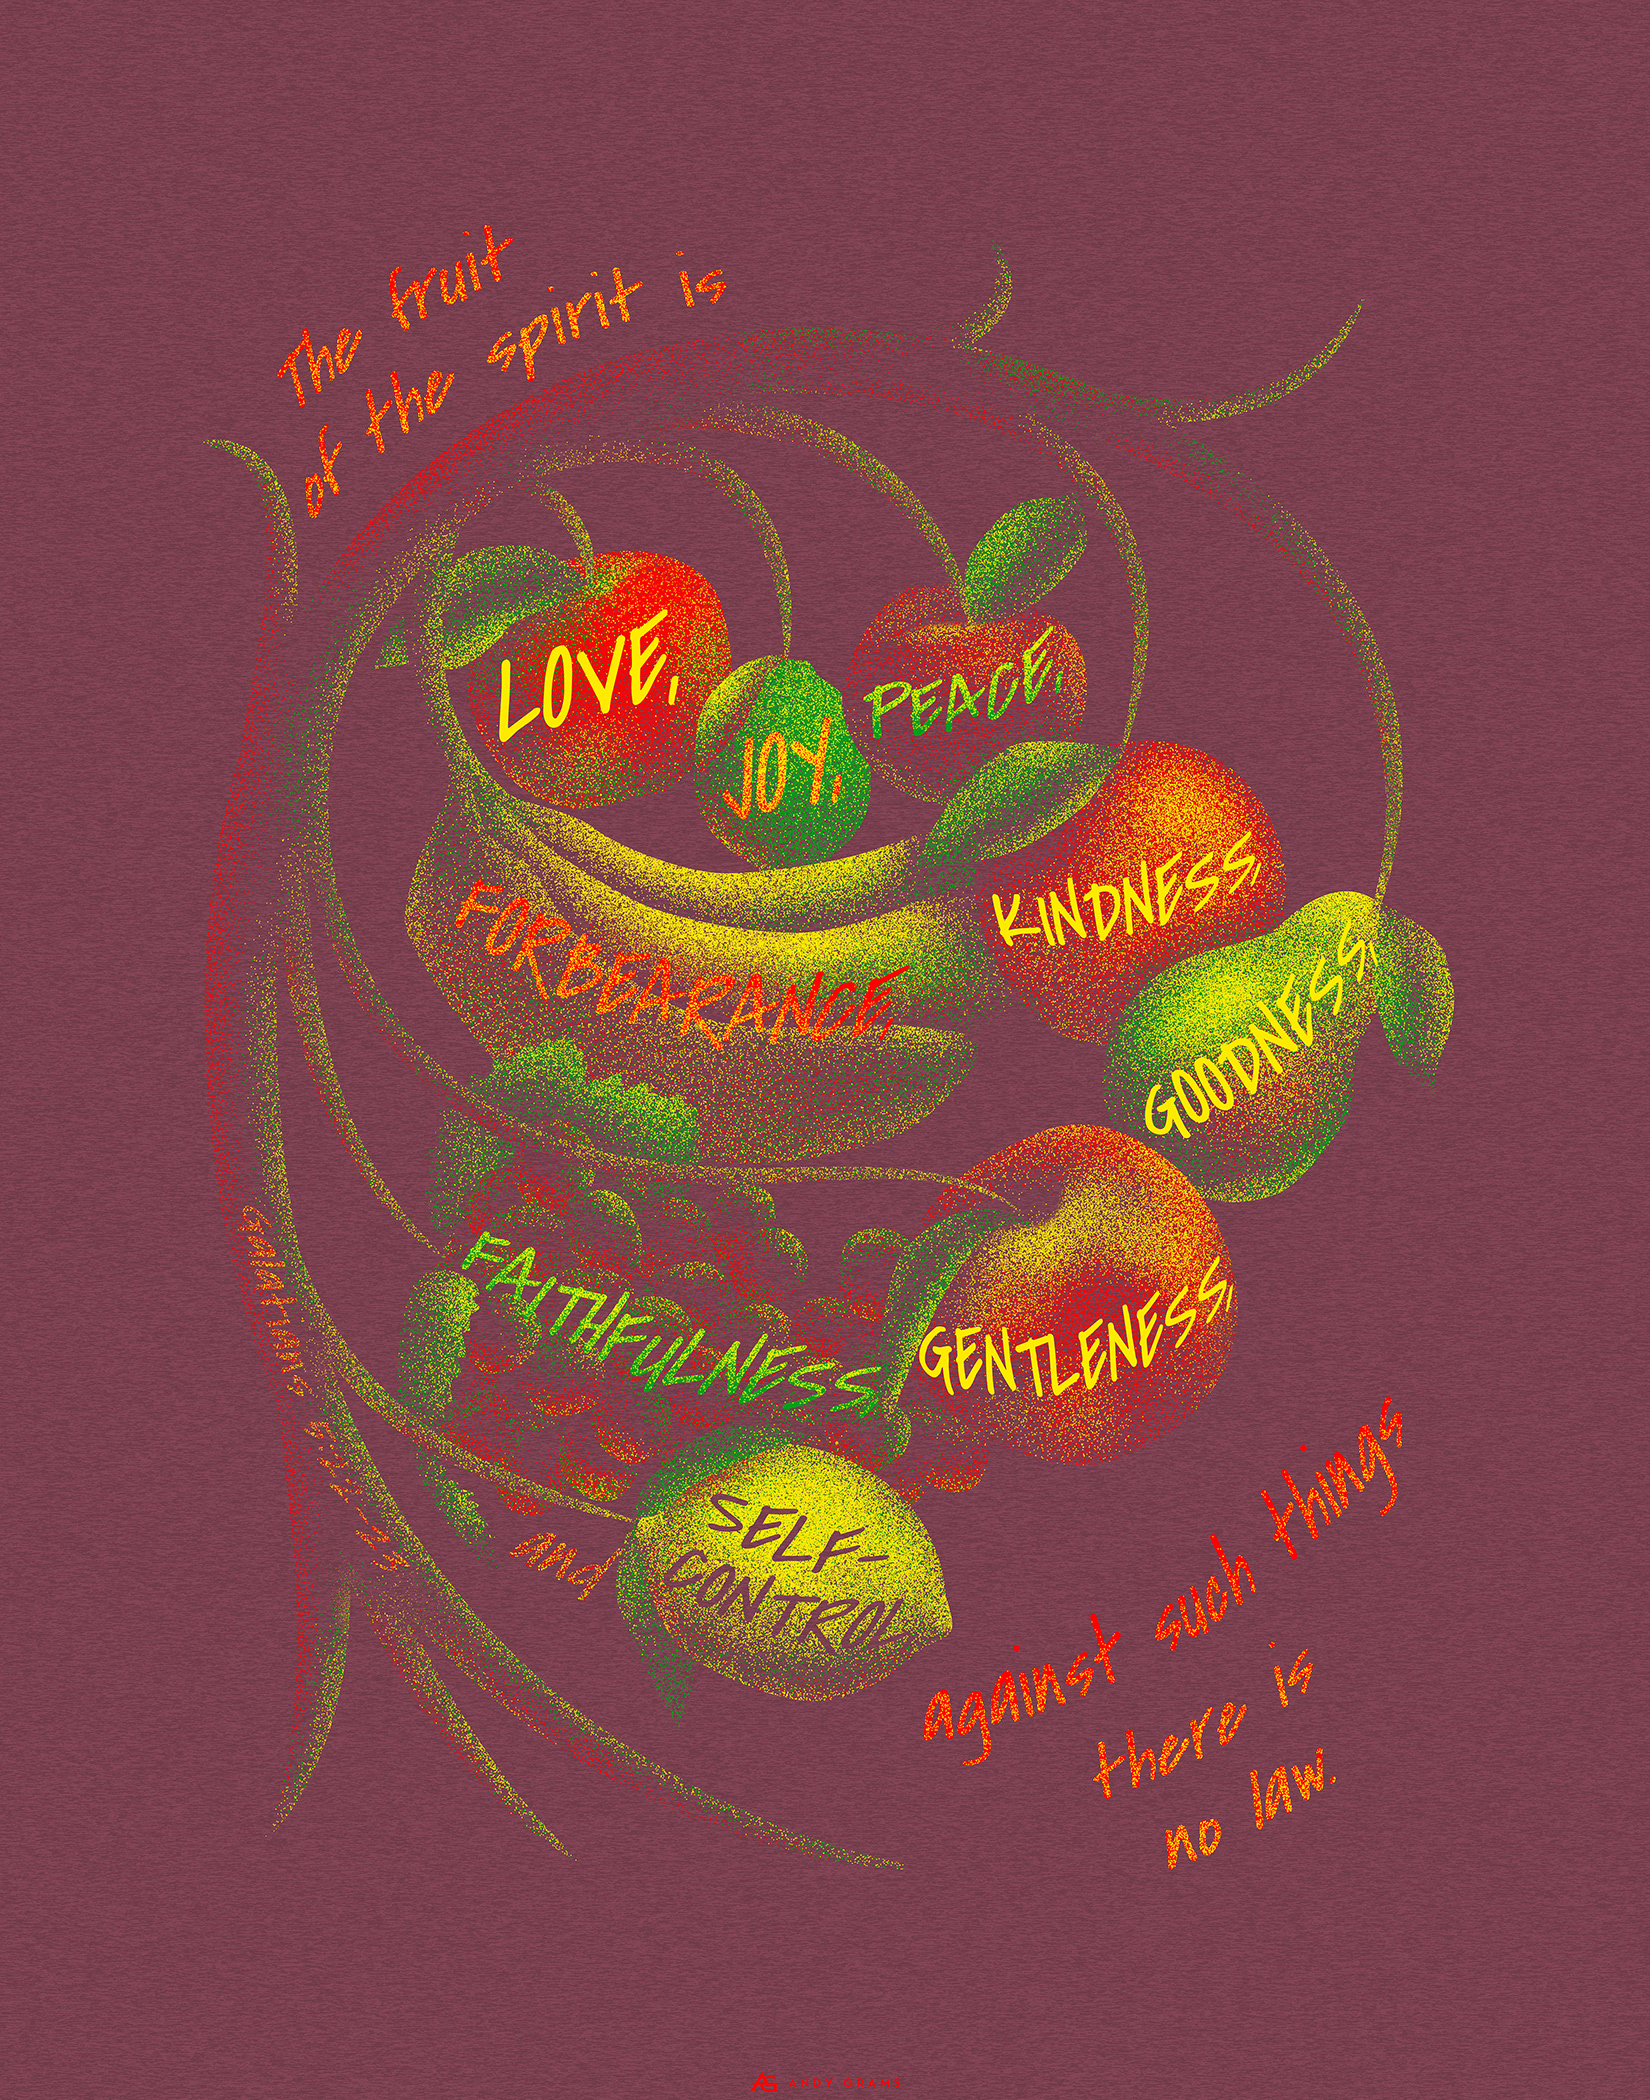 The fruit
of the spirit is
LOVE,
JOY,
PEACE,
FORBEARANCE,
KINDNESS,
GOODNESS,
FAITHFULNESS,
GENTLENESS,
and
SELF-
CONTROL
against such things
there is
no law.
Galatians
AG ANDY GRAMS